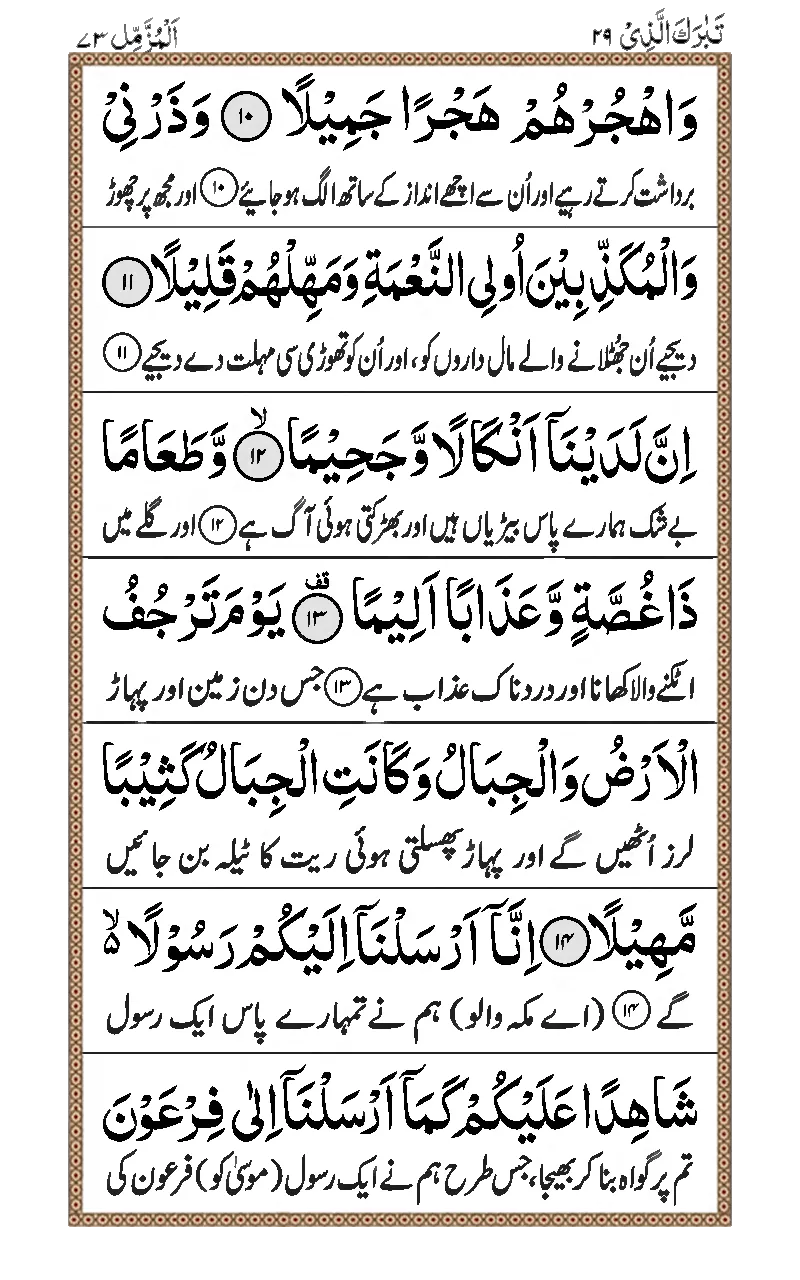 تَبٰرَكَ الَّذِیْ ۲۹
اَلْمُزَّمِّل ۷۳
وَاهْجُرْهُمْ هَجْرًا جَمِیْلًا ۱۰ وَذَرْنِیْ
برداشت کرتے رہیے اور اُن سے اچھے انداز کے ساتھ الگ ہو جایئے ۱۰ اور مجھ پر چھوڑ
وَالْمُكَذِّبِیْنَ اُولِی النَّعْمَةِ وَمَهِّلْهُمْ قَلِیْلًا ۱۱
دیجیے اُن جھُٹلانے والے مال داروں کو، اور اُن کو تھوڑی سی مہلت دے دیجیے ۱۱
اِنَّ لَدَیْنَاۤ اَنْكَالًا وَّجَحِیْمًا ۱۲ۙ وَّطَعَامًا
بے شک ہمارے پاس بیڑیاں ہیں اور بھڑکتی ہوئی آگ ہے ۱۲ اور گلے میں
ذَا غُصَّةٍ وَّعَذَابًا اَلِیْمًا ۱۳ قف یَوْمَ تَرْجُفُ
اٹکنے والا کھانا اور دردناک عذاب ہے ۱۳ جس دن زمین اور پہاڑ
الْاَرْضُ وَالْجِبَالُ وَكَانَتِ الْجِبَالُ كَثِیْبًا
لرز اُٹھیں گے اور پہاڑ پھسلتی ہوئی ریت کا ٹیلہ بن جائیں
مَّهِیْلًا ۱۴ اِنَّاۤ اَرْسَلْنَاۤ اِلَیْكُمْ رَسُوْلًا ۵ۙ
گے ۱۴ (اے مکہ والو) ہم نے تمہارے پاس ایک رسول
شَاهِدًا عَلَیْكُمْ كَمَاۤ اَرْسَلْنَاۤ اِلٰی فِرْعَوْنَ
تم پر گواہ بنا کر بھیجا، جس طرح ہم نے ایک رسول (موسیٰ کو) فرعون کی